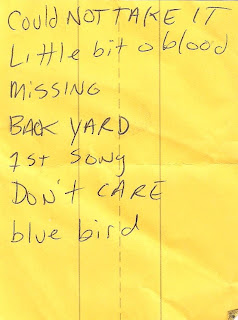 Could NOT TAKE IT
Little bit o blood
MISSING
BACK YARD
1st Song
DON'T CARE
blue bird